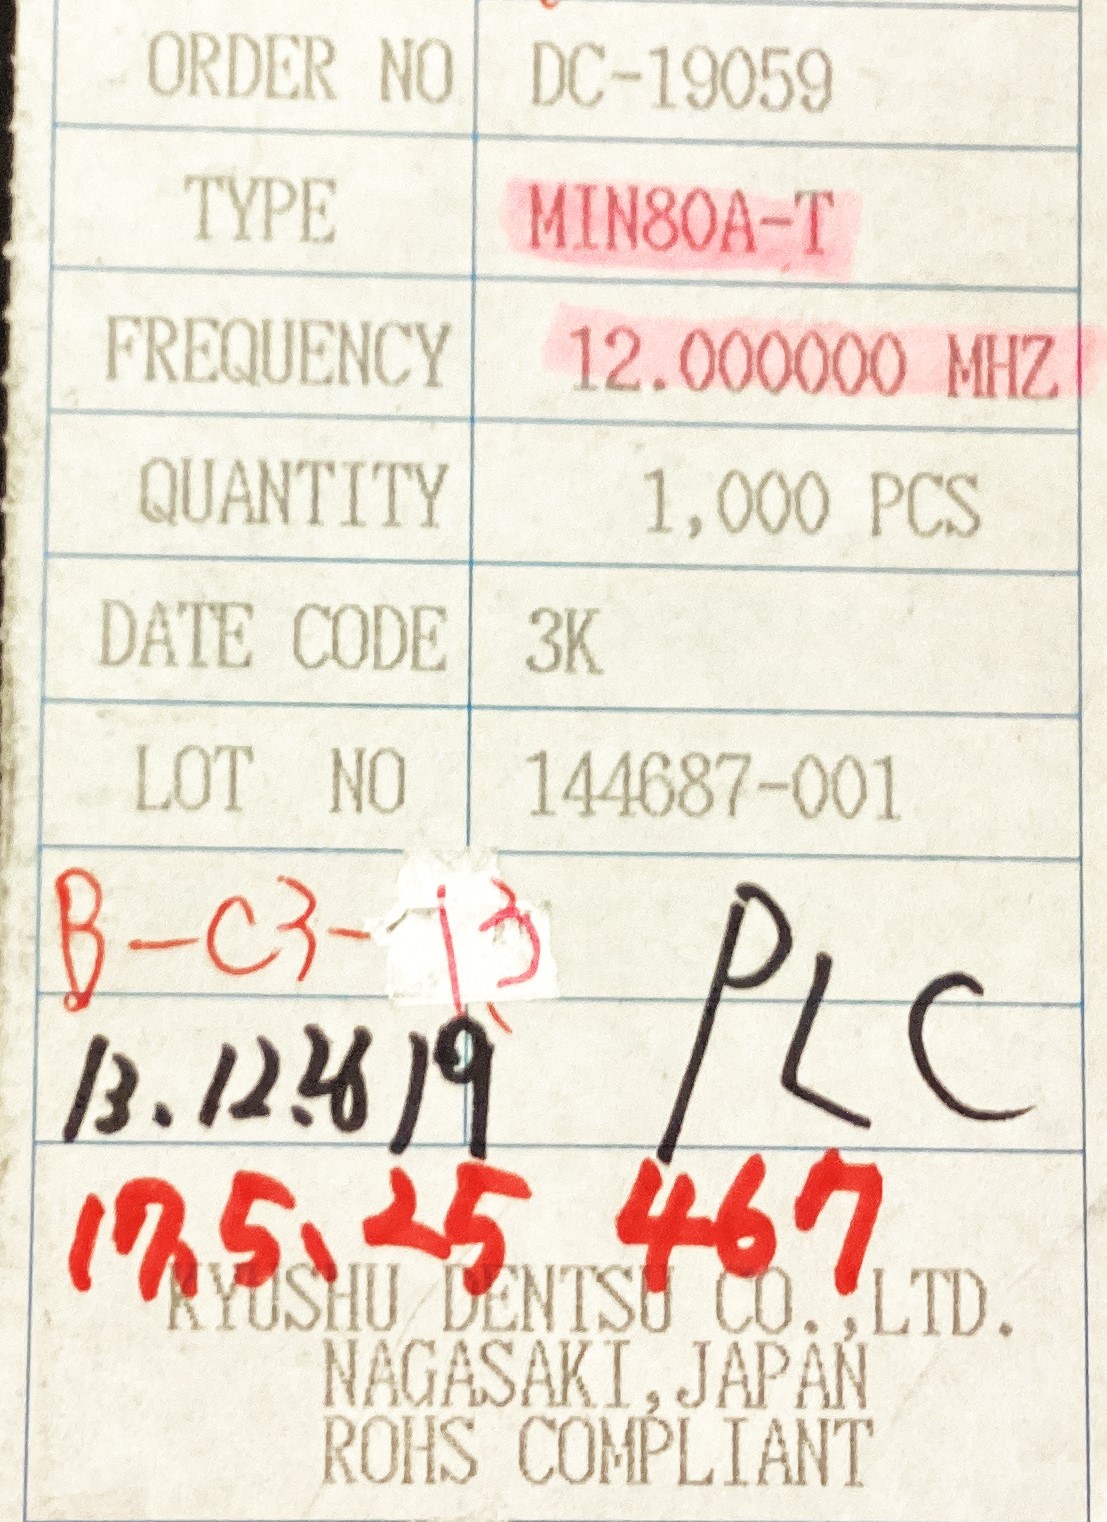 ORDER NO DC-19059
TYPE MIN80A-T
FREQUENCY 12.000000 MHZ
QUANTITY 1,000 PCS
DATE CODE 3K
LOT NO 144687-001
B-C3-13
PLC
13.12. 19
17.5.25 467
KYUSHU DENTSU CO.,LTD.
NAGASAKI,JAPAN
ROHS COMPLIANT